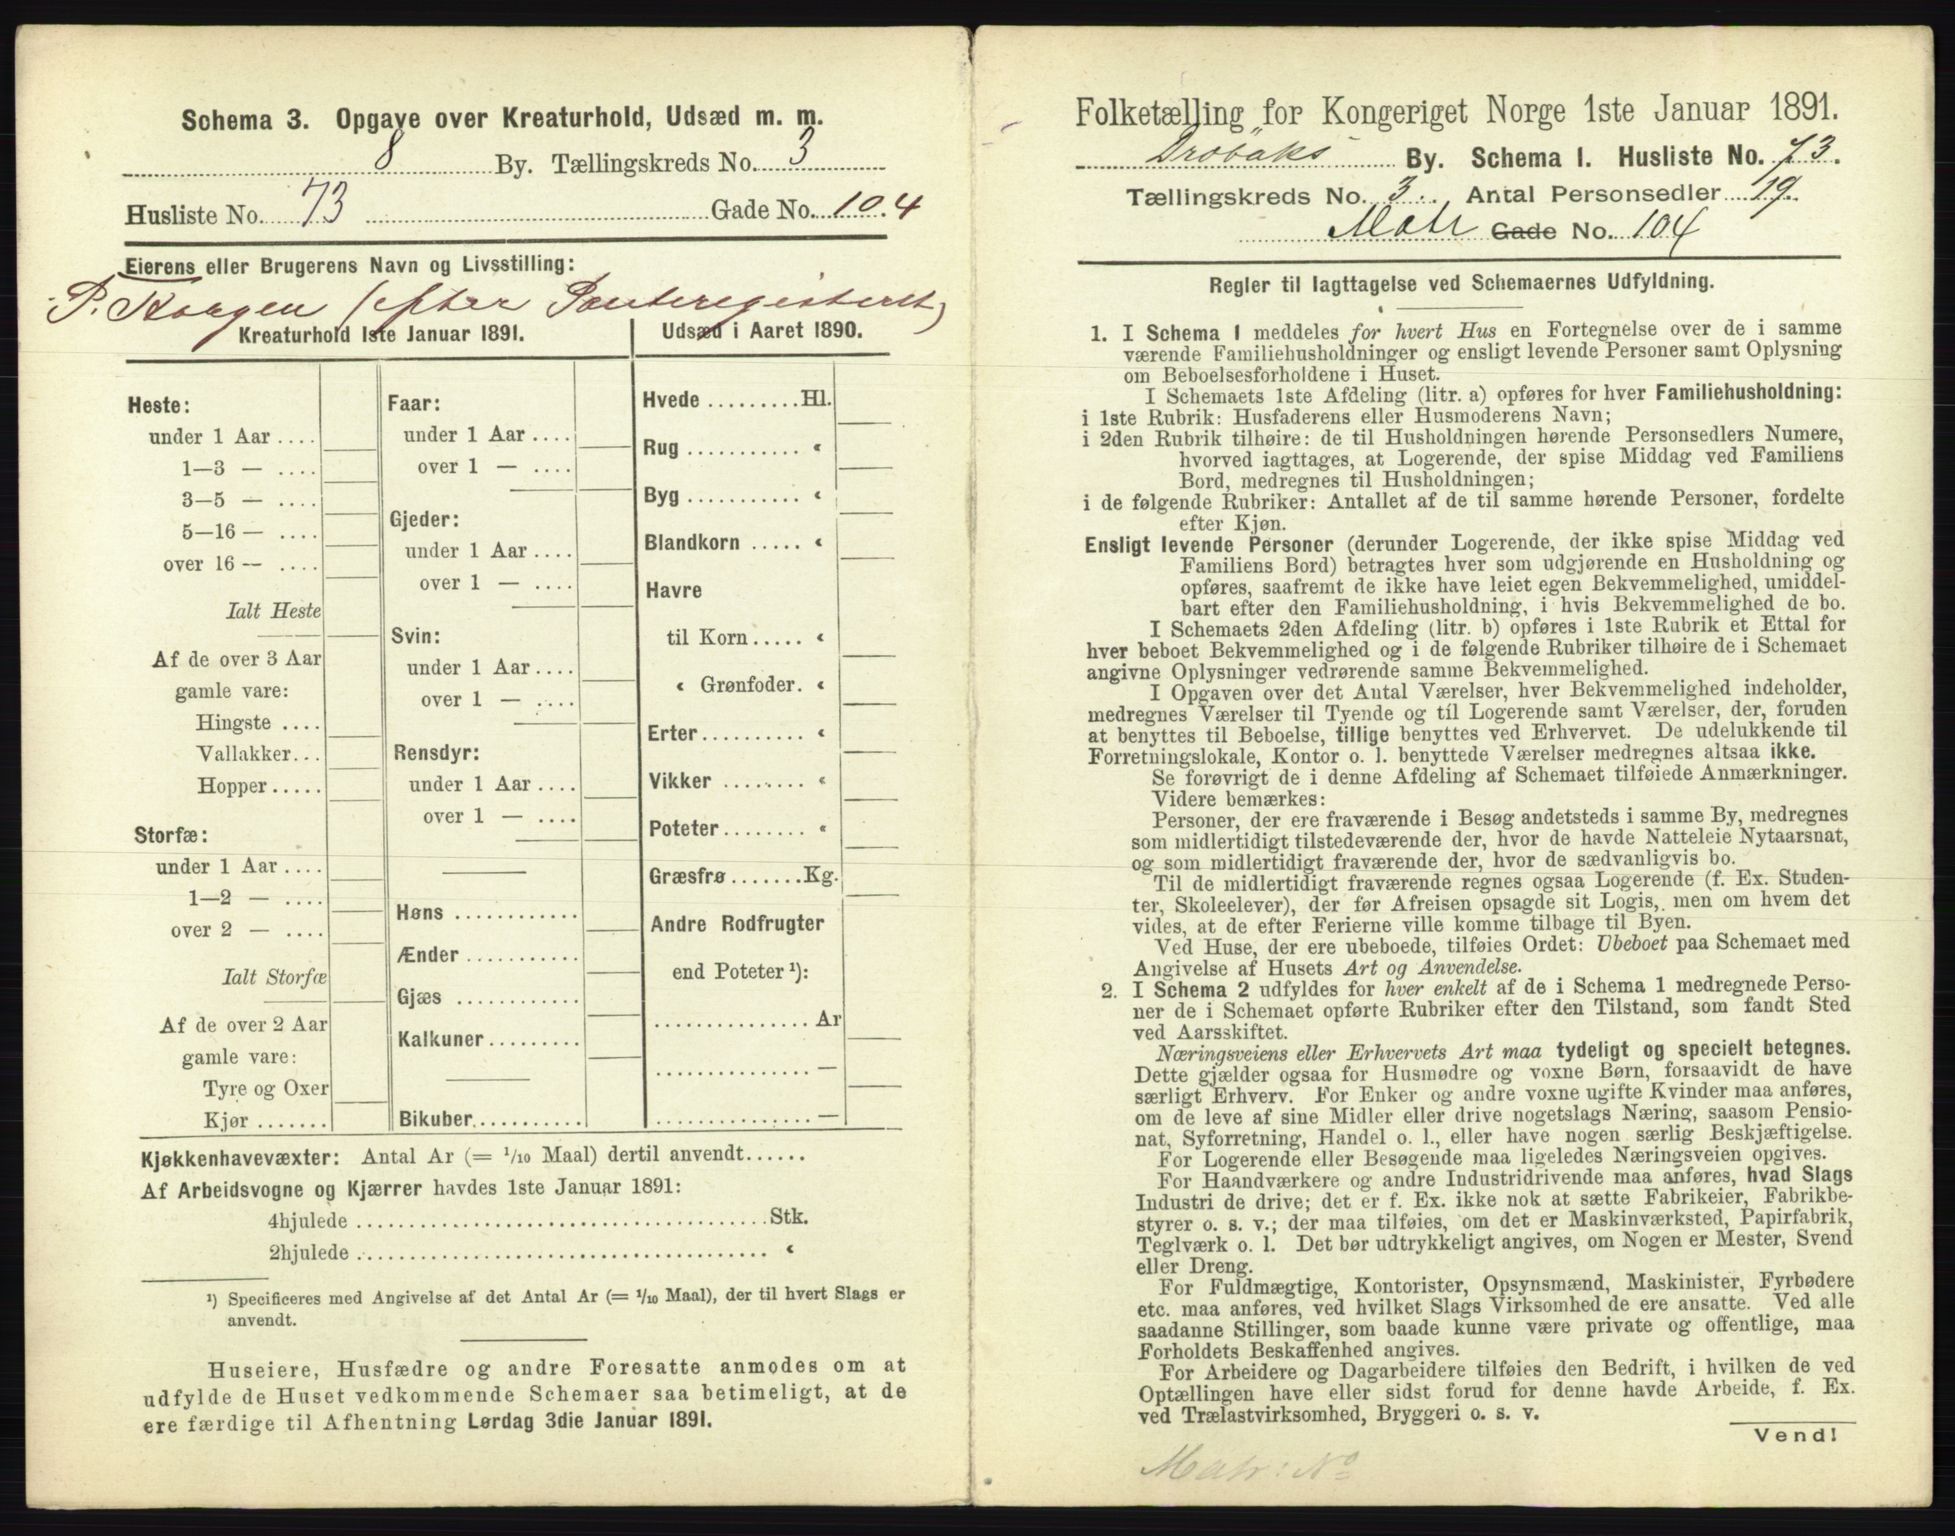 Schema 3. Opgave over Kreaturhold, Udsæd m. m.
8 By. Tællingskreds No. 3
Husliste No. 73 Gade No. 104
Eierens eller Brugerens Navn og Livsstilling:
P. Korgen (efter Panteregisteret)
Kreaturhold 1ste Januar 1891.
Heste:
under 1 Aar ....
1—3 — ....
3—5 — ....
5—16 — ....
over 16 — ....
Ialt Heste
Af de over 3 Aar
gamle vare:
Hingste ....
Vallakker...
Hopper.....
Storfæ:
under 1 Aar ....
1—2 — ....
over 2 — ....
Ialt Storfæ
Af de over 2 Aar
gamle vare:
Tyre og Oxer
Kjør .......
Faar:
under 1 Aar ....
over 1 — ....
Gjeder:
under 1 Aar ....
over 1 — ....
Svin:
under 1 Aar ....
over 1 — ....
Rensdyr:
under 1 Aar ....
over 1 — ....
Høns ...........
Ænder ...........
Gjæs ...........
Kalkuner.........
Bikuber..........
Udsæd i Aaret 1890.
Hvede .........Hl.
Rug .......... «
Byg .......... «
Blandkorn ..... «
Havre
til Korn..... «
« Grønfoder. «
Erter......... «
Vikker ........ «
Poteter........ «
Græsfrø.......Kg.
Andre Rodfrugter
end Poteter ¹):
...............Ar
...............—
...............—
Kjøkkenhavevæxter: Antal Ar (= 1/10 Maal) dertil anvendt......
Af Arbeidsvogne og Kjærrer havdes 1ste Januar 1891:
4hjulede .......................................Stk.
2hjulede ....................................... «
¹) Specificeres med Angivelse af det Antal Ar (= 1/10 Maal), der til hvert Slags er
anvendt.
Huseiere, Husfædre og andre Foresatte anmodes om at
udfylde de Huset vedkommende Schemaer saa betimeligt, at de
ere færdige til Afhentning Lørdag 3die Januar 1891.
Folketælling for Kongeriget Norge 1ste Januar 1891.
Drøbaks By. Schema 1. Husliste No. 73.
Tællingskreds No. 3. Antal Personsedler 19.
Matr Gade No. 104
Regler til Iagttagelse ved Schemaernes Udfyldning.
1. I Schema 1 meddeles for hvert Hus en Fortegnelse over de i samme
værende Familiehusholdninger og ensligt levende Personer samt Oplysning
om Beboelsesforholdene i Huset.
I Schemaets 1ste Afdeling (litr. a) opføres for hver Familiehusholdning:
i 1ste Rubrik: Husfaderens eller Husmoderens Navn;
i 2den Rubrik tilhøire: de til Husholdningen hørende Personsedlers Numere,
hvorved iagttages, at Logerende, der spise Middag ved Familiens
Bord, medregnes til Husholdningen;
i de følgende Rubriker: Antallet af de til samme hørende Personer, fordelte
efter Kjøn.
Ensligt levende Personer (derunder Logerende, der ikke spise Middag ved
Familiens Bord) betragtes hver som udgjørende en Husholdning og
opføres, saafremt de ikke have leiet egen Bekvemmelighed, umiddel-
bart efter den Familiehusholdning, i hvis Bekvemmelighed de bo.
I Schemaets 2den Afdeling (litr. b) opføres i 1ste Rubrik et Ettal for
hver beboet Bekvemmelighed og i de følgende Rubriker tilhøire de i Schemaet
angivne Oplysninger vedrørende samme Bekvemmelighed.
I Opgaven over det Antal Værelser, hver Bekvemmelighed indeholder,
medregnes Værelser til Tyende og til Logerende samt Værelser, der, foruden
at benyttes til Beboelse, tillige benyttes ved Erhvervet. De udelukkende til
Forretningslokale, Kontor o. l. benyttede Værelser medregnes altsaa ikke.
Se forøvrigt de i denne Afdeling af Schemaet tilføiede Anmærkninger.
Videre bemærkes:
Personer, der ere fraværende i Besøg andetsteds i samme By, medregnes
som midlertidigt tilstedeværende der, hvor de havde Natteleie Nytaarsnat,
og som midlertidigt fraværende der, hvor de sædvanligvis bo.
Til de midlertidigt fraværende regnes ogsaa Logerende (f. Ex. Studen-
ter, Skoleelever), der før Afreisen opsagde sit Logis, men om hvem det
vides, at de efter Ferierne ville komme tilbage til Byen.
Ved Huse, der ere ubeboede, tilføies Ordet: Ubeboet paa Schemaet med
Angivelse af Husets Art og Anvendelse.
2. I Schema 2 udfyldes for hver enkelt af de i Schema 1 medregnede Perso-
ner de i Schemaet opførte Rubriker efter den Tilstand, som fandt Sted
ved Aarsskiftet.
Næringsveiens eller Erhvervets Art maa tydeligt og specielt betegnes.
Dette gjælder ogsaa for Husmødre og voxne Børn, forsaavidt de have
særligt Erhverv. For Enker og andre voxne ugifte Kvinder maa anføres,
om de leve af sine Midler eller drive nogetslags Næring, saasom Pensio-
nat, Syforretning, Handel o. l., eller have nogen særlig Beskjæftigelse.
For Logerende eller Besøgende maa ligeledes Næringsveien opgives.
For Haandværkere og andre Industridrivende maa anføres, hvad Slags
Industri de drive; det er f. Ex. ikke nok at sætte Fabrikeier, Fabrikbe-
styrer o. s. v.; der maa tilføies, om det er Maskinværksted, Papirfabrik,
Teglværk o. l. Det bør udtrykkeligt angives, om Nogen er Mester, Svend
eller Dreng.
For Fuldmægtige, Kontorister, Opsynsmænd, Maskinister, Fyrbødere
etc. maa anføres, ved hvilket Slags Virksomhed de ere ansatte. Ved alle
saadanne Stillinger, som baade kunne være private og offentlige, maa
Forholdets Beskaffenhed angives.
For Arbeidere og Dagarbeidere tilføies den Bedrift, i hvilken de ved
Optællingen have eller sidst forud for denne havde Arbeide, f. Ex.
ved Trælastvirksomhed, Bryggeri o. s. v.
Vend!
Matr: No